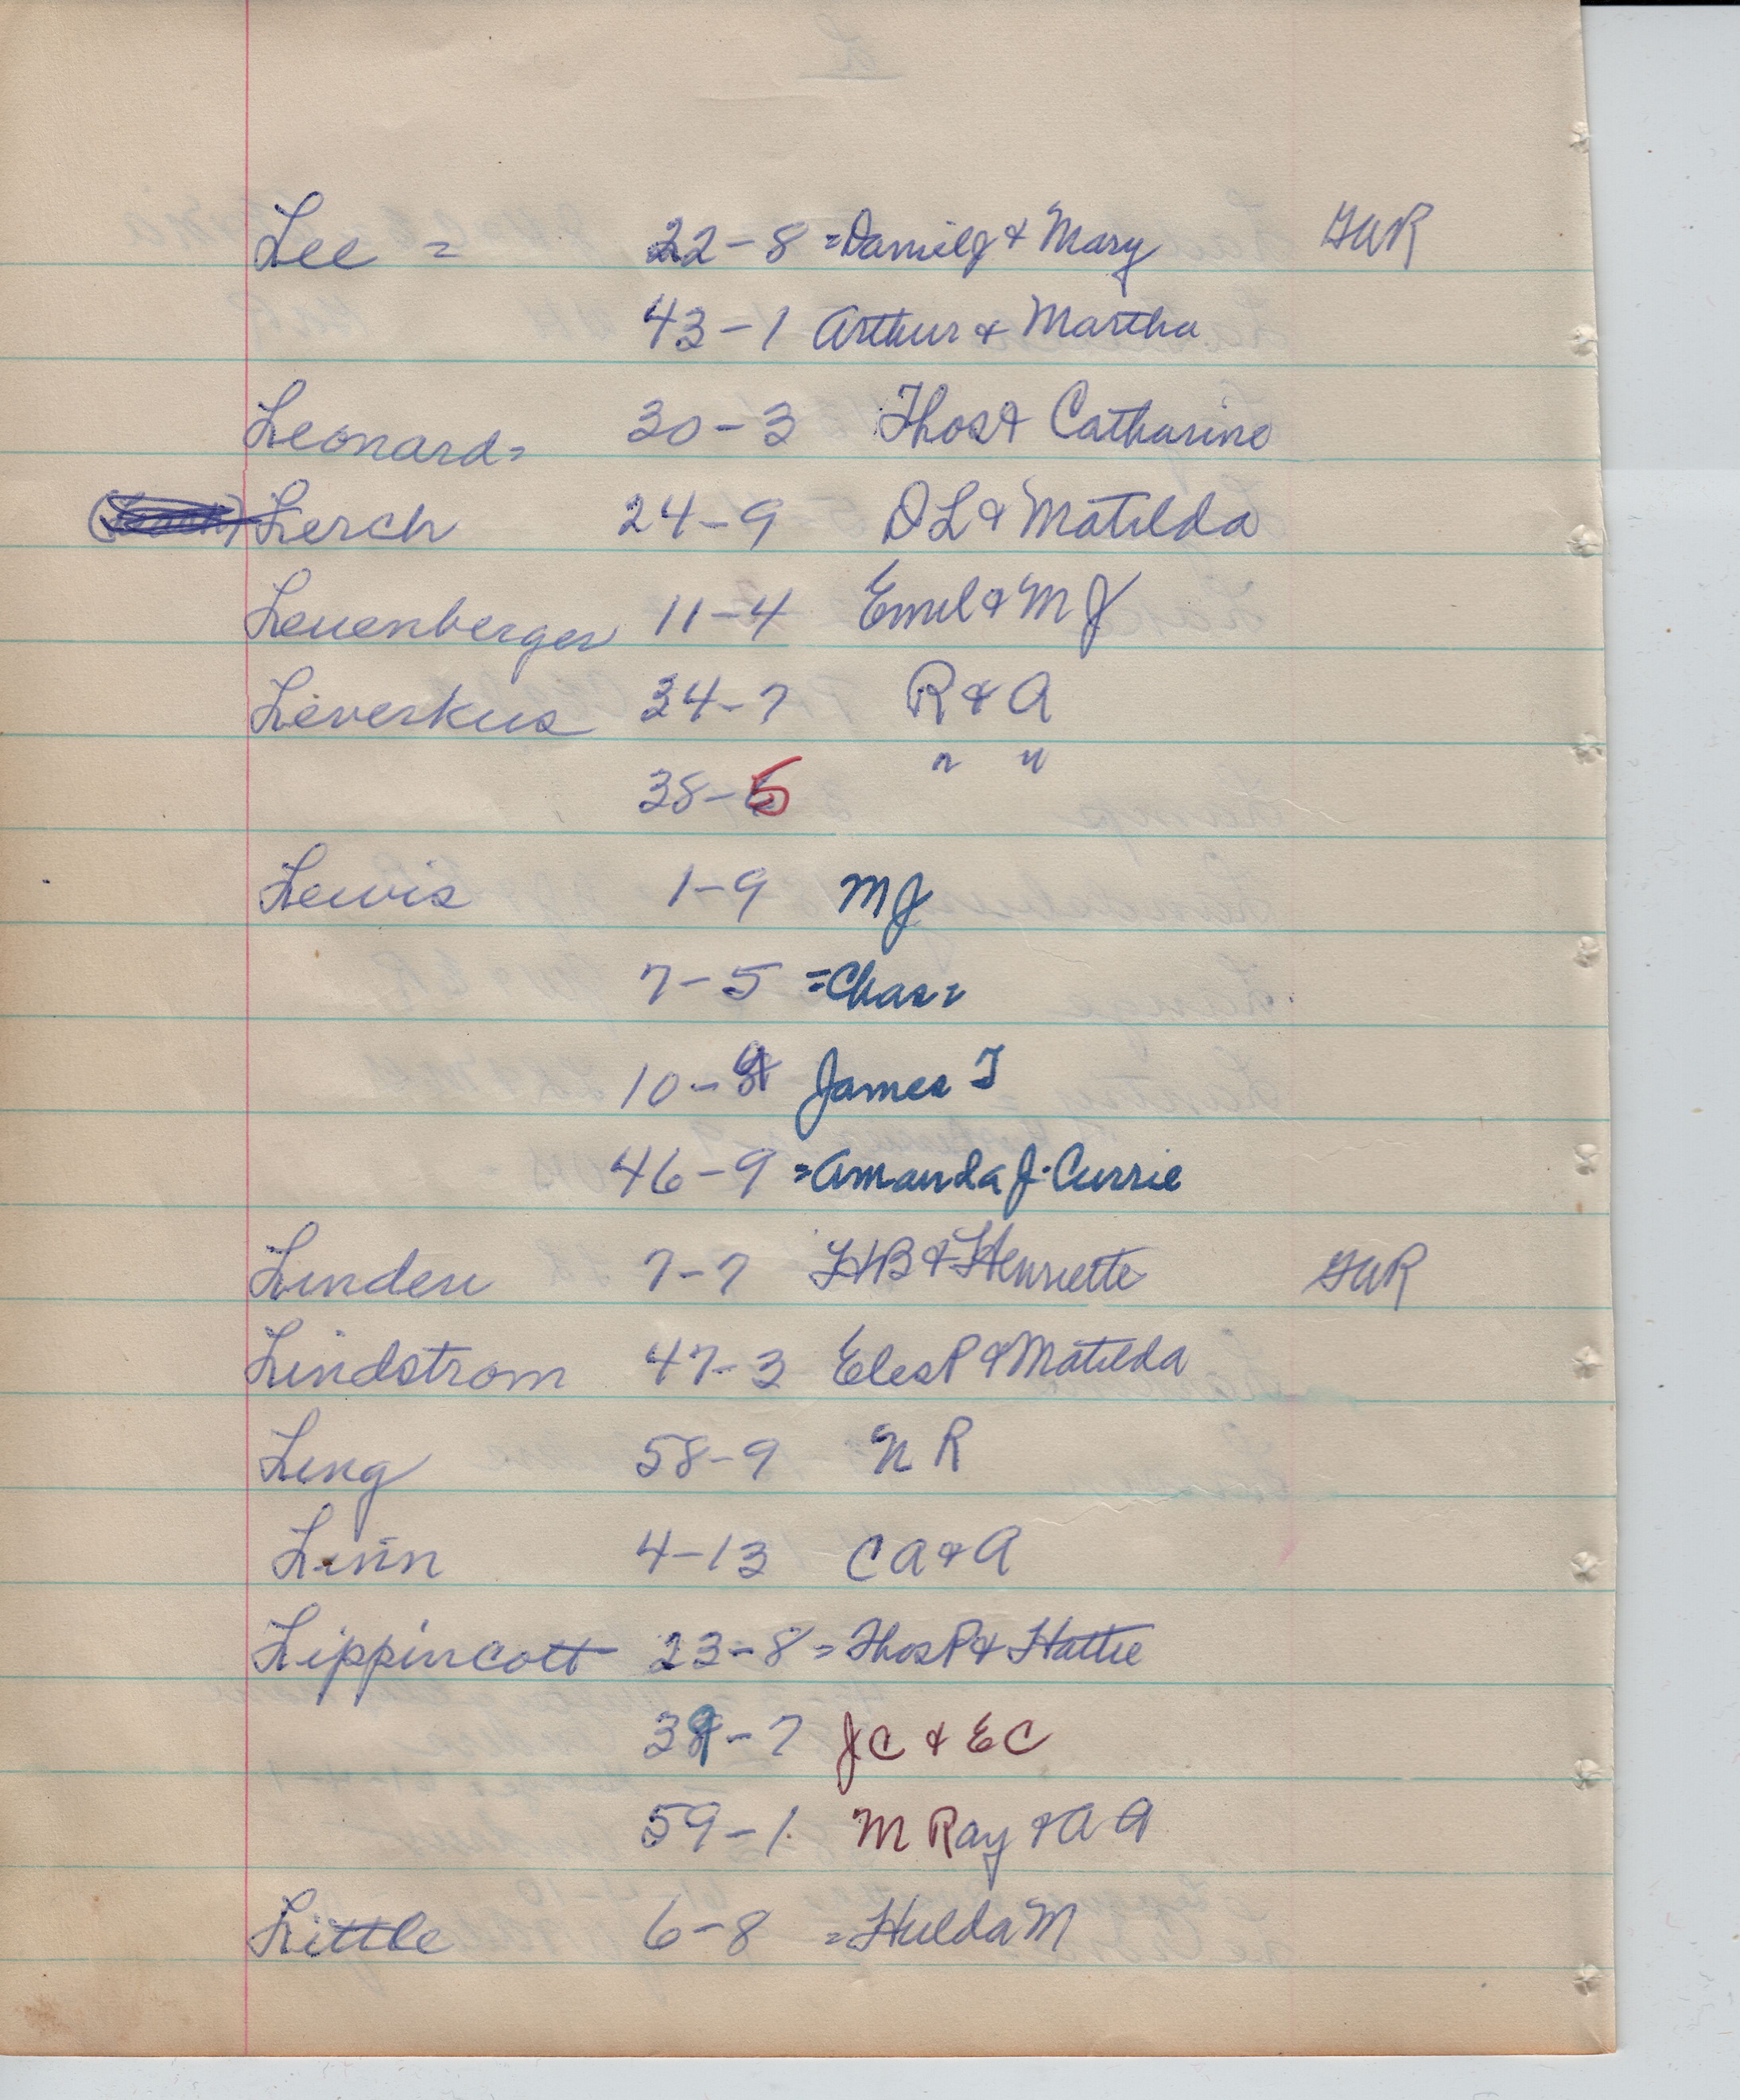 Lee = 22-8 = Daniel J & Mary GAR
43-1 Arthur & Martha
Leonard = 30-3 Thos & Catharine
Lerch 24-9 D L & Matilda
Leuenberger 11-4 Emil & M J
Leverkus 34-7 R & A
38-5 " "
Lewis 1-9 M J
7-5 = Chas =
10-9 James T
46-9 = Amanda J. Currie
Linden 7-7 H B & Henriette GAR
Lindstrom 47-3 Eles P & Matilda
Ling 58-9 N R
Linn 4-13 C A & A
Lippincott 23-8 = Thos P & Hattie
39-7 J C & E C
59-1 M Ray & A A
Little 6-8 = Hulda M